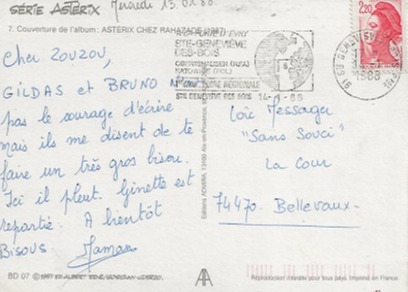 SÉRIE ASTÉRIX
Mercredi 13.01.88
7. Couverture de l'album: ASTERIX CHEZ RAHAZADE (1987)
Cher ZOUZOU,
GILDAS et BRUNO N'ont
pas le courage d'écrire
mais ils me disent de te
faire un très gros bisou.
Ici il pleut. Ginette est
repartie. A bientôt
Bisous Maman
BD 07 © 1987
D'EVRY
STE-GENEVIÈVE
DES-BOIS
RÉGIONALE
STE GENEVIEVE DES BOIS 14-1-88
2,20
1988
Editions ADMIRA, 13100 Aix-en-Provence
Loïc Messager
"Sans Souci"
La Cour
74470 Bellevaux
Reproduction interdite pour tous pays. Imprimé en France.